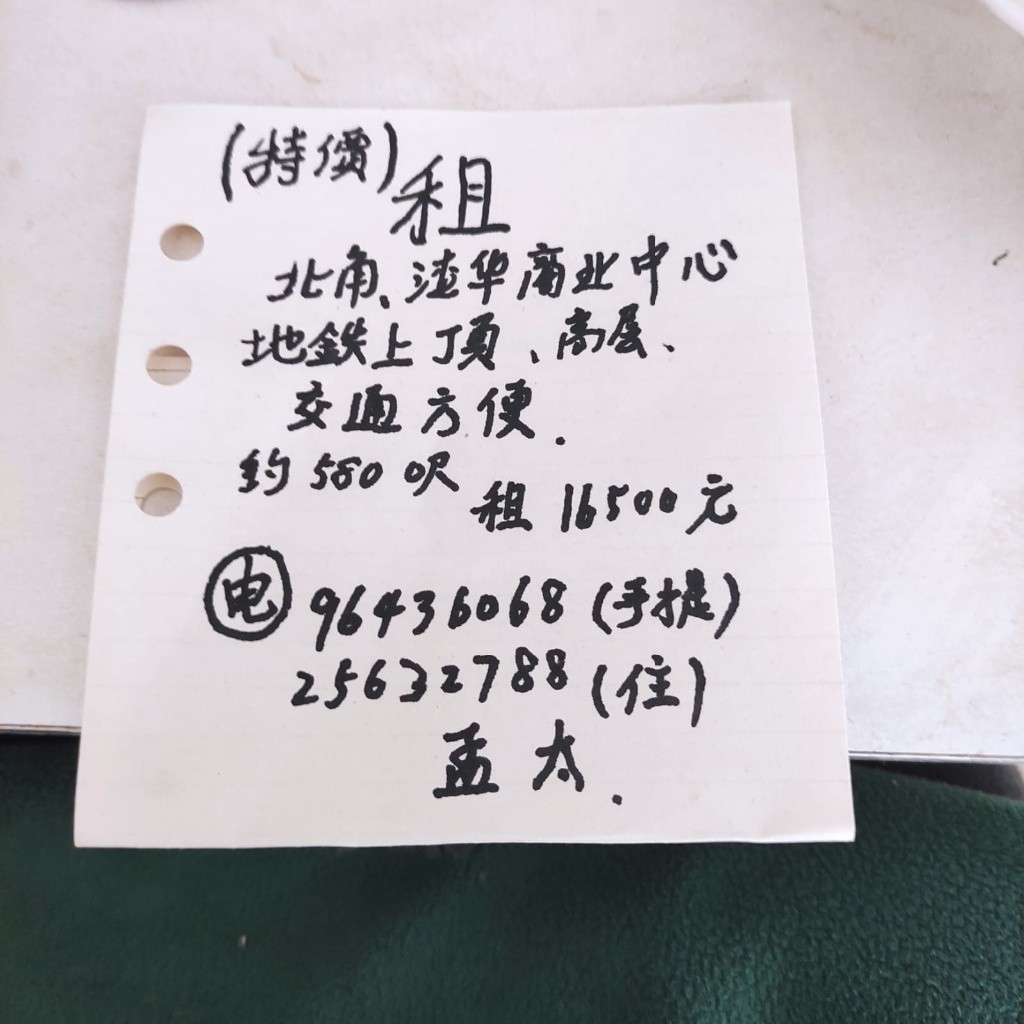 (特價)租
北角、渣华商业中心
地鉄上頂、高层、
交通方便.
约580呎 租16500元
电 96436068(手提)
25632788(住)
孟太.